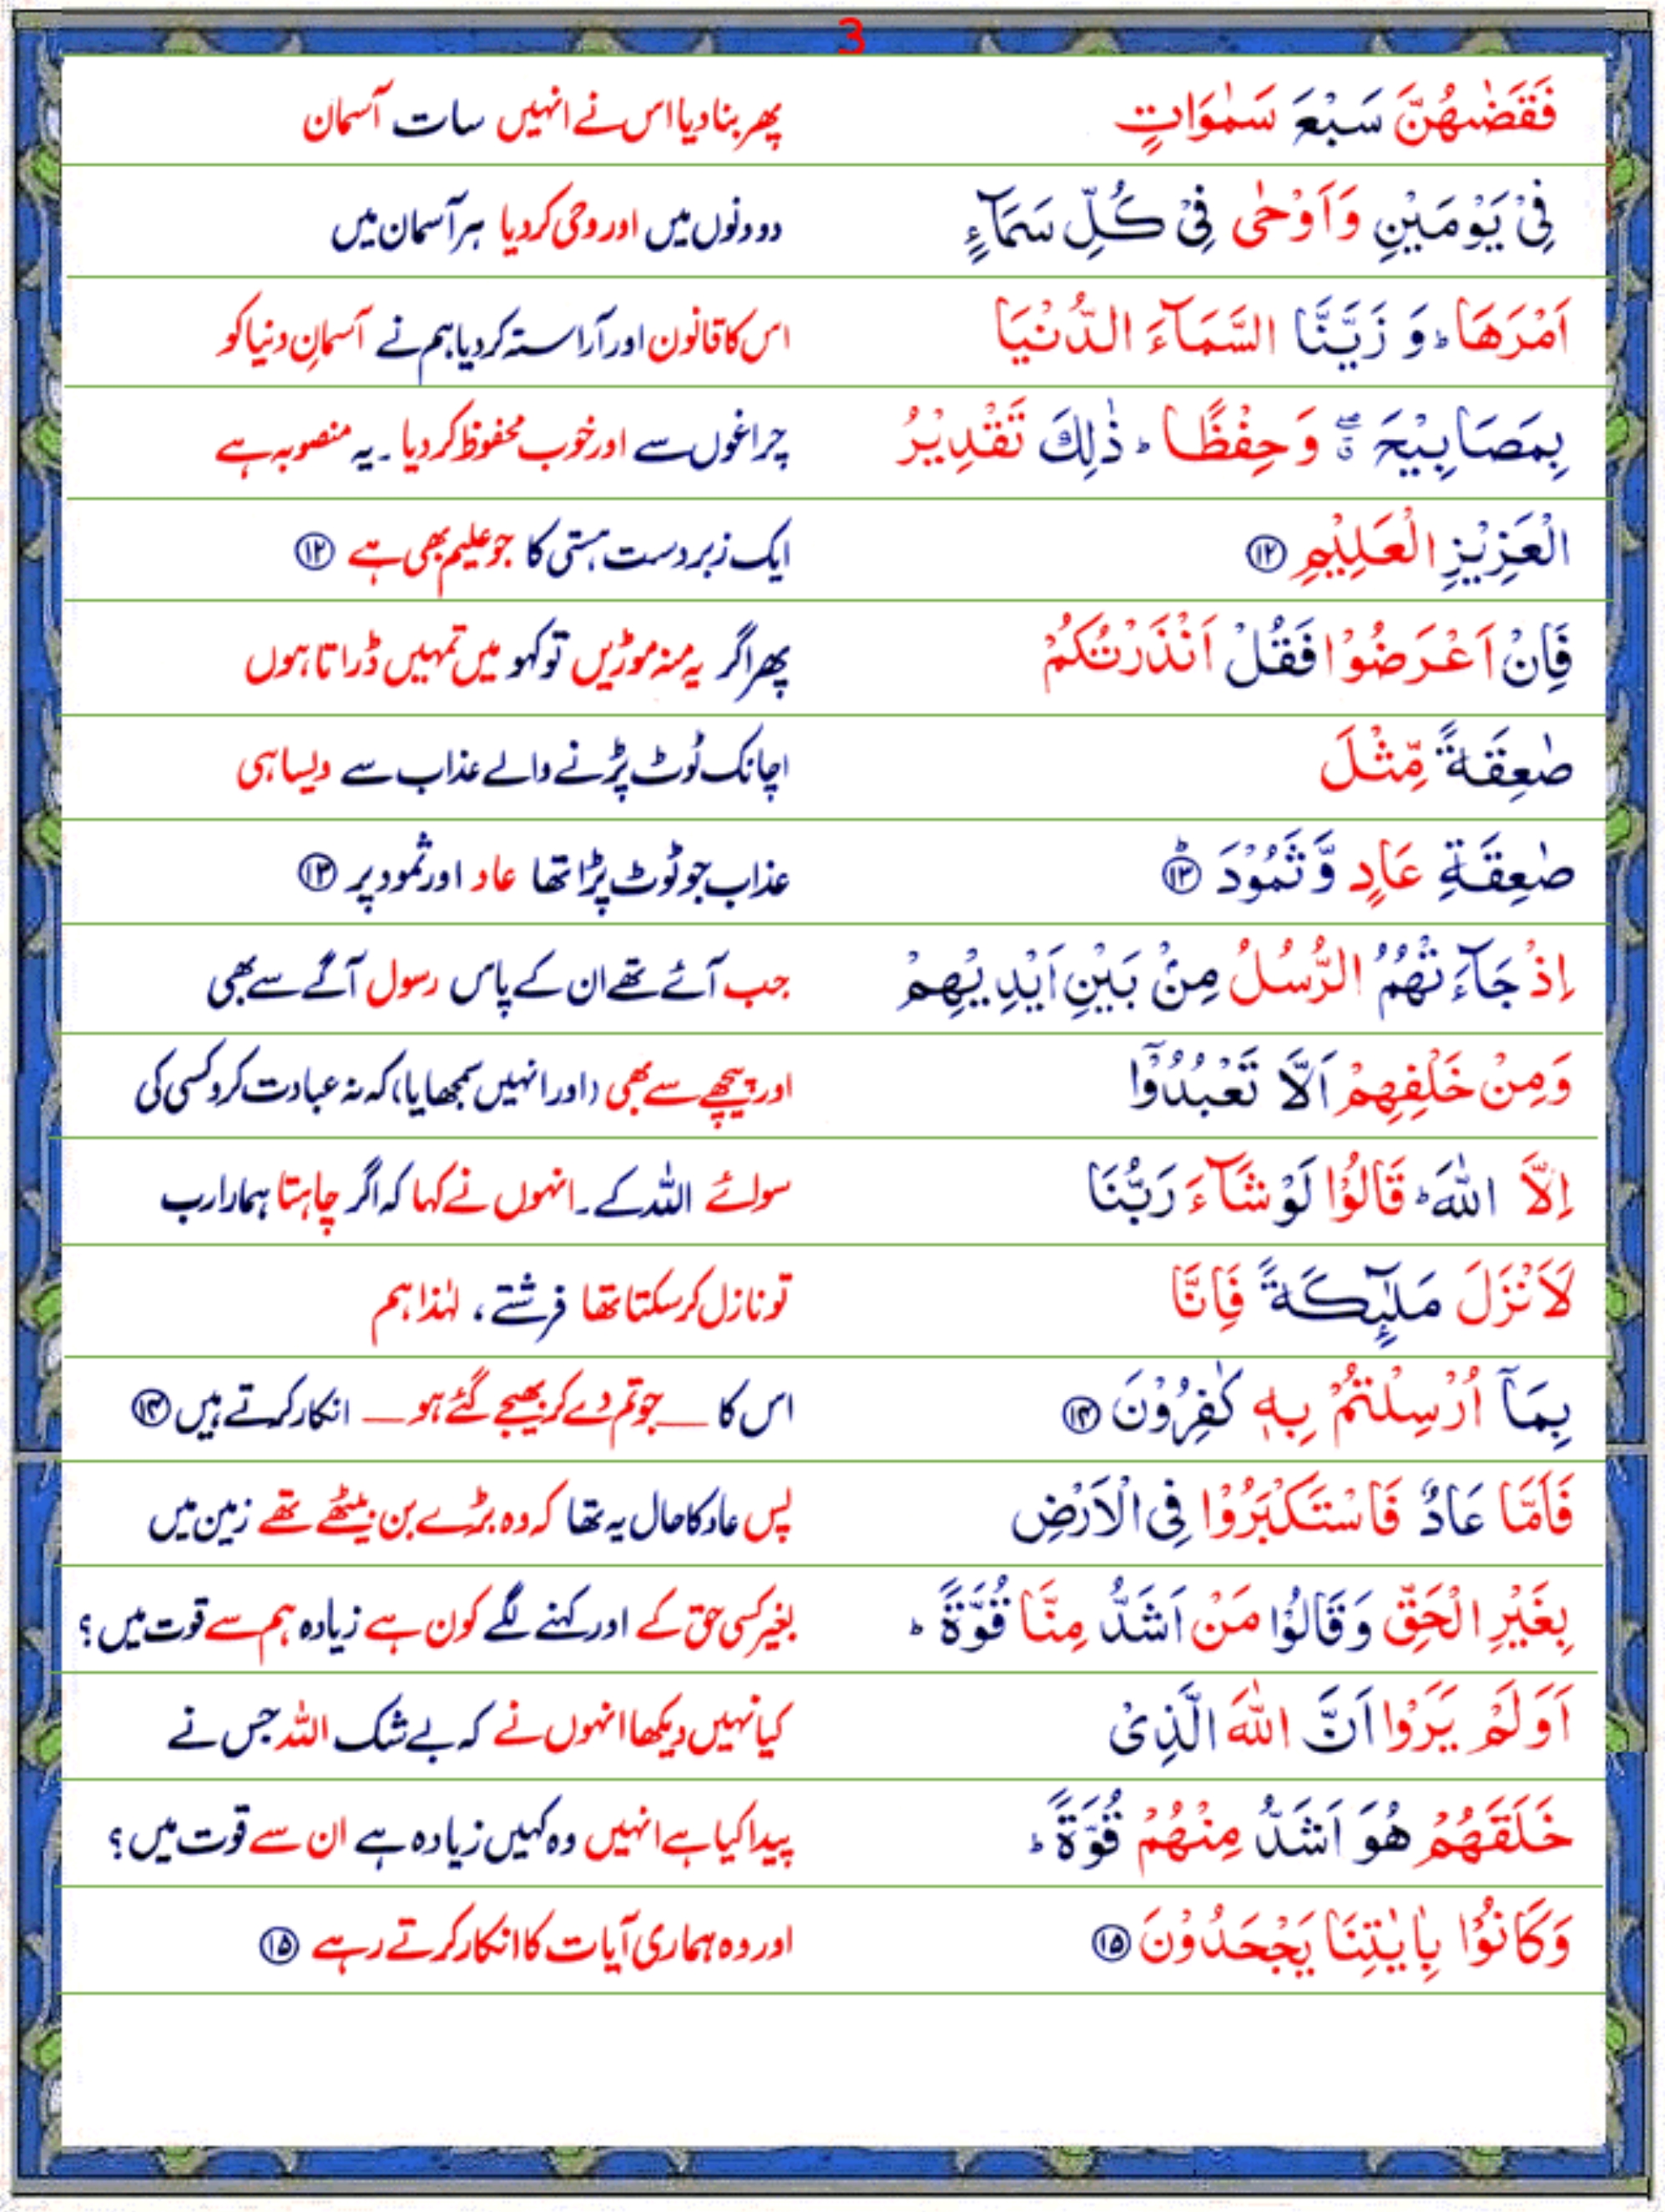 3
فَقَضٰىهُنَّ سَبْعَ سَمٰوَاتٍ پھر بنا دیا اس نے انہیں سات آسمان
فِیْ یَوْمَیْنِ وَاَوْحٰی فِیْ کُلِّ سَمَآءٍ دو دنوں میں اور وحی کردیا ہر آسمان میں
اَمْرَهَا ؕ وَ زَیَّنَّا السَّمَآءَ الدُّنْیَا اس کا قانون اور آراستہ کردیا ہم نے آسمانِ دنیا کو
بِمَصَابِیْحَ ۖۗ وَحِفْظًا ؕ ذٰلِكَ تَقْدِیْرُ چراغوں سے اور خوب محفوظ کردیا ۔ یہ منصوبہ ہے
الْعَزِیْزِ الْعَلِیْمِ ﴿۱۲﴾ ایک زبردست ہستی کا جو علیم بھی ہے ﴿۱۲﴾
فَاِنْ اَعْرَضُوْا فَقُلْ اَنْذَرْتُکُمْ پھر اگر یہ منہ موڑیں تو کہو میں تمہیں ڈراتا ہوں
صٰعِقَةً مِّثْلَ اچانک ٹوٹ پڑنے والے عذاب سے ویسا ہی
صٰعِقَةِ عَادٍ وَّثَمُوْدَ ؕ﴿۱۳﴾ عذاب جو ٹوٹ پڑا تھا عاد اور ثمود پر ﴿۱۳﴾
اِذْ جَآءَتْهُمُ الرُّسُلُ مِنْۢ بَیْنِ اَیْدِیْهِمْ جب آئے تھے ان کے پاس رسول آگے سے بھی
وَمِنْ خَلْفِهِمْ اَلَّا تَعْبُدُوْۤا اور پیچھے سے بھی (اور انہیں سمجھایا) کہ نہ عبادت کرو کسی کی
اِلَّا اللّٰهَ ؕ قَالُوْا لَوْ شَآءَ رَبُّنَا سوائے اللہ کے ۔ انہوں نے کہا کہ اگر چاہتا ہمارا رب
لَاَنْزَلَ مَلٰٓئِکَةً فَاِنَّا تو نازل کرسکتا تھا فرشتے، لہٰذا ہم
بِمَاۤ اُرْسِلْتُمْ بِهٖ کٰفِرُوْنَ ﴿۱۴﴾ اس کا __ جو تم دے کر بھیجے گئے ہو __ انکار کرتے ہیں ﴿۱۴﴾
فَاَمَّا عَادٌ فَاسْتَکْبَرُوْا فِی الْاَرْضِ پس عاد کا حال یہ تھا کہ وہ بڑے بن بیٹھے تھے زمین میں
بِغَیْرِ الْحَقِّ وَقَالُوْا مَنْ اَشَدُّ مِنَّا قُوَّةً ؕ بغیر کسی حق کے اور کہنے لگے کون ہے زیادہ ہم سے قوت میں؟
اَوَلَمْ یَرَوْا اَنَّ اللّٰهَ الَّذِیْ کیا نہیں دیکھا انہوں نے کہ بے شک اللہ جس نے
خَلَقَهُمْ هُوَ اَشَدُّ مِنْهُمْ قُوَّةً ؕ پیدا کیا ہے انہیں وہ کہیں زیادہ ہے ان سے قوت میں؟
وَکَانُوْا بِاٰیٰتِنَا یَجْحَدُوْنَ ﴿۱۵﴾ اور وہ ہماری آیات کا انکار کرتے رہے ﴿۱۵﴾